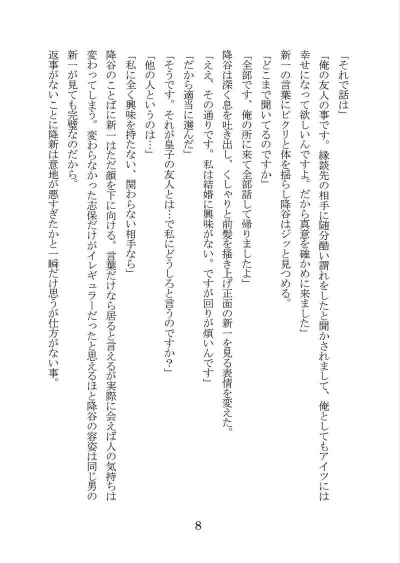 「それで話は」
「俺の友人の事です。縁談先の相手に随分酷い謂れをしたと聞かされまして、俺としてもアイツには
幸せになって欲しいんですよ。だから真意を確かめに来ました」
新一の言葉にピクリと体を揺らし降谷はジッと見つめる。
「どこまで聞いてるのですか」
「全部です、俺の所に来て全部話して帰りましたよ」
降谷は深い息を吐き出し、くしゃりと前髪を掻き上げ正面の新一を見る表情を変えた。
「ええ、その通りです。私は結婚に興味がない。ですが回りが煩いんです」
「だから適当に選んだ」
「そうです。それが皇子の友人とは…で私にどうしろと言うのですか？」
「他の人というのは…」
「私に全く興味を持たない、関わらない相手なら」
降谷のことばに新一はただ顔を下に向ける。言葉だけなら居ると言えるが実際に会えば人の気持ちは
変わってしまう。変わらなかった志保だけがイレギュラーだったと思えるほど降谷の容姿は同じ男の
新一が見ても完璧なのだから。
返事がないことに降新は意地が悪すぎたかと一瞬だけ思うが仕方がない事。
8